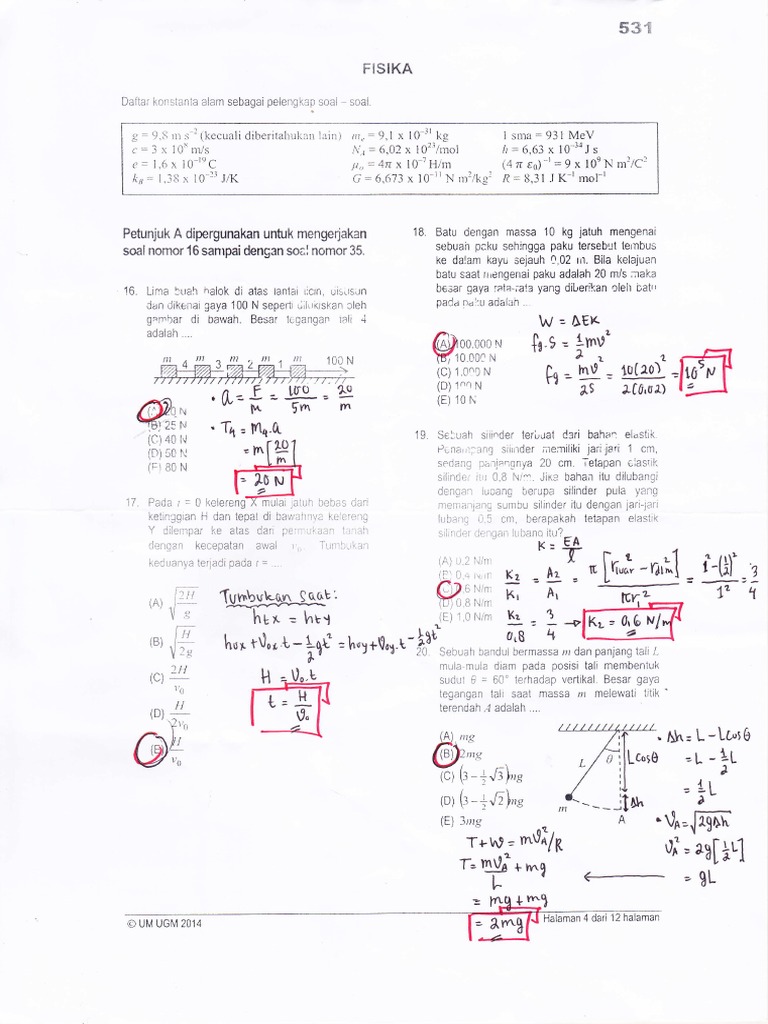 531
FISIKA
Daftar konstanta alam sebagai pelengkap soal – soal.
g = 9,8 m s⁻² (kecuali diberitahukan lain) mₑ = 9,1 x 10⁻³¹ kg 1 sma = 931 MeV
c = 3 x 10⁸ m/s N_A = 6,02 x 10²³/mol h = 6,63 x 10⁻³⁴ J s
e = 1,6 x 10⁻¹⁹ C μ₀ = 4π x 10⁻⁷ H/m (4 π ε₀)⁻¹ = 9 x 10⁹ N m²/C²
k_B = 1,38 x 10⁻²³ J/K G = 6,673 x 10⁻¹¹ N m²/kg² R = 8,31 J K⁻¹ mol⁻¹
Petunjuk A dipergunakan untuk mengerjakan
soal nomor 16 sampai dengan soal nomor 35.
16. Lima buah balok di atas lantai licin, disusun
dan dikenai gaya 100 N seperti dilukiskan oleh
gambar di bawah. Besar tegangan tali 4
adalah ....
m 4 m 3 m 2 m 1 m 100 N
(A) 20 N
(B) 25 N
(C) 40 N
(D) 50 N
(E) 80 N
• a = F/m = 100/5m = 20/m
• T₄ = m₄.a
= m [20/m]
= 20 N
17. Pada t = 0 kelereng X mulai jatuh bebas dari
ketinggian H dan tepat di bawahnya kelereng
Y dilempar ke atas dari permukaan tanah
dengan kecepatan awal v₀. Tumbukan
keduanya terjadi pada t = ....
(A) √(2H/g)
(B) √(H/2g)
(C) 2H/v₀
(D) H/2v₀
(E) H/v₀
Tumbukan saat:
htx = hty
hox + Vox.t - 1/2 gt² = hoy + Voy.t - 1/2 gt²
H = V₀.t
t = H/V₀
18. Batu dengan massa 10 kg jatuh mengenai
sebuah paku sehingga paku tersebut tembus
ke dalam kayu sejauh 0,02 m. Bila kelajuan
batu saat mengenai paku adalah 20 m/s maka
besar gaya rata-rata yang diberikan oleh batu
pada paku adalah ...
(A) 100.000 N
(B) 10.000 N
(C) 1.000 N
(D) 100 N
(E) 10 N
W = ΔEK
fg.S = 1/2 mv²
fg = mv²/2S = 10(20)²/2(0.02) = 10⁵ N
19. Sebuah silinder terbuat dari bahan elastik.
Penampang silinder memiliki jari-jari 1 cm,
sedang panjangnya 20 cm. Tetapan elastik
silinder itu 0,8 N/m. Jika bahan itu dilubangi
dengan lubang berupa silinder pula yang
memanjang sumbu silinder itu dengan jari-jari
lubang 0,5 cm, berapakah tetapan elastik
silinder dengan lubang itu?
(A) 0,2 N/m
(B) 0,4 N/m
(C) 0,6 N/m
(D) 0,8 N/m
(E) 1,0 N/m
K = EA/l
K₂/K₁ = A₂/A₁ = π[r²luar - r²dlm]/πr₁² = 1² - (1/2)²/1² = 3/4
K₂/0,8 = 3/4 → K₂ = 0,6 N/m
20. Sebuah bandul bermassa m dan panjang tali L
mula-mula diam pada posisi tali membentuk
sudut θ = 60° terhadap vertikal. Besar gaya
tegangan tali saat massa m melewati titik
terendah A adalah ....
(A) mg
(B) 2mg
(C) (3 – ½√3)mg
(D) (3 – ½√2)mg
(E) 3mg
L θ L cos θ
Δh
m A
• Δh = L - L cos θ
= L - 1/2 L
= 1/2 L
• V_A = √2gΔh
V_A² = 2g[1/2 L]
= gL
T + W = mV_A²/R
T = mV_A²/L + mg
= mg + mg
= 2mg
© UM UGM 2014 Halaman 4 dari 12 halaman